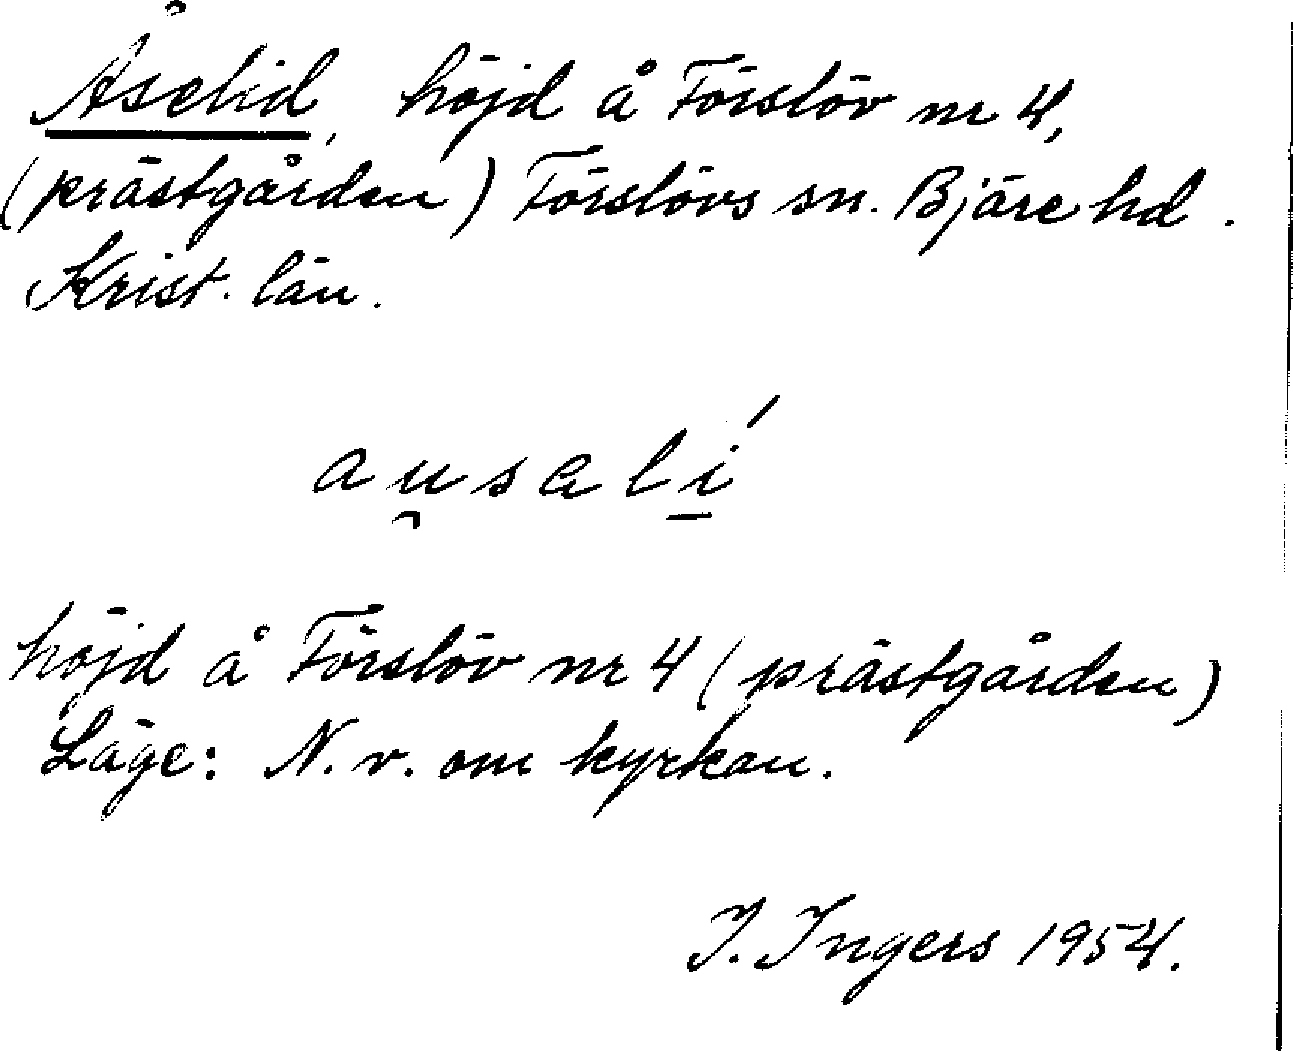 Åselid, höjd å Förslöv nr 4,
(prästgården) Förslövs sn. Bjäre hd.
Krist. län.
au̯salí̱
höjd å Förslöv nr 4 (prästgården)
Läge: N.v. om kyrkan.
I. Ingers 1954.